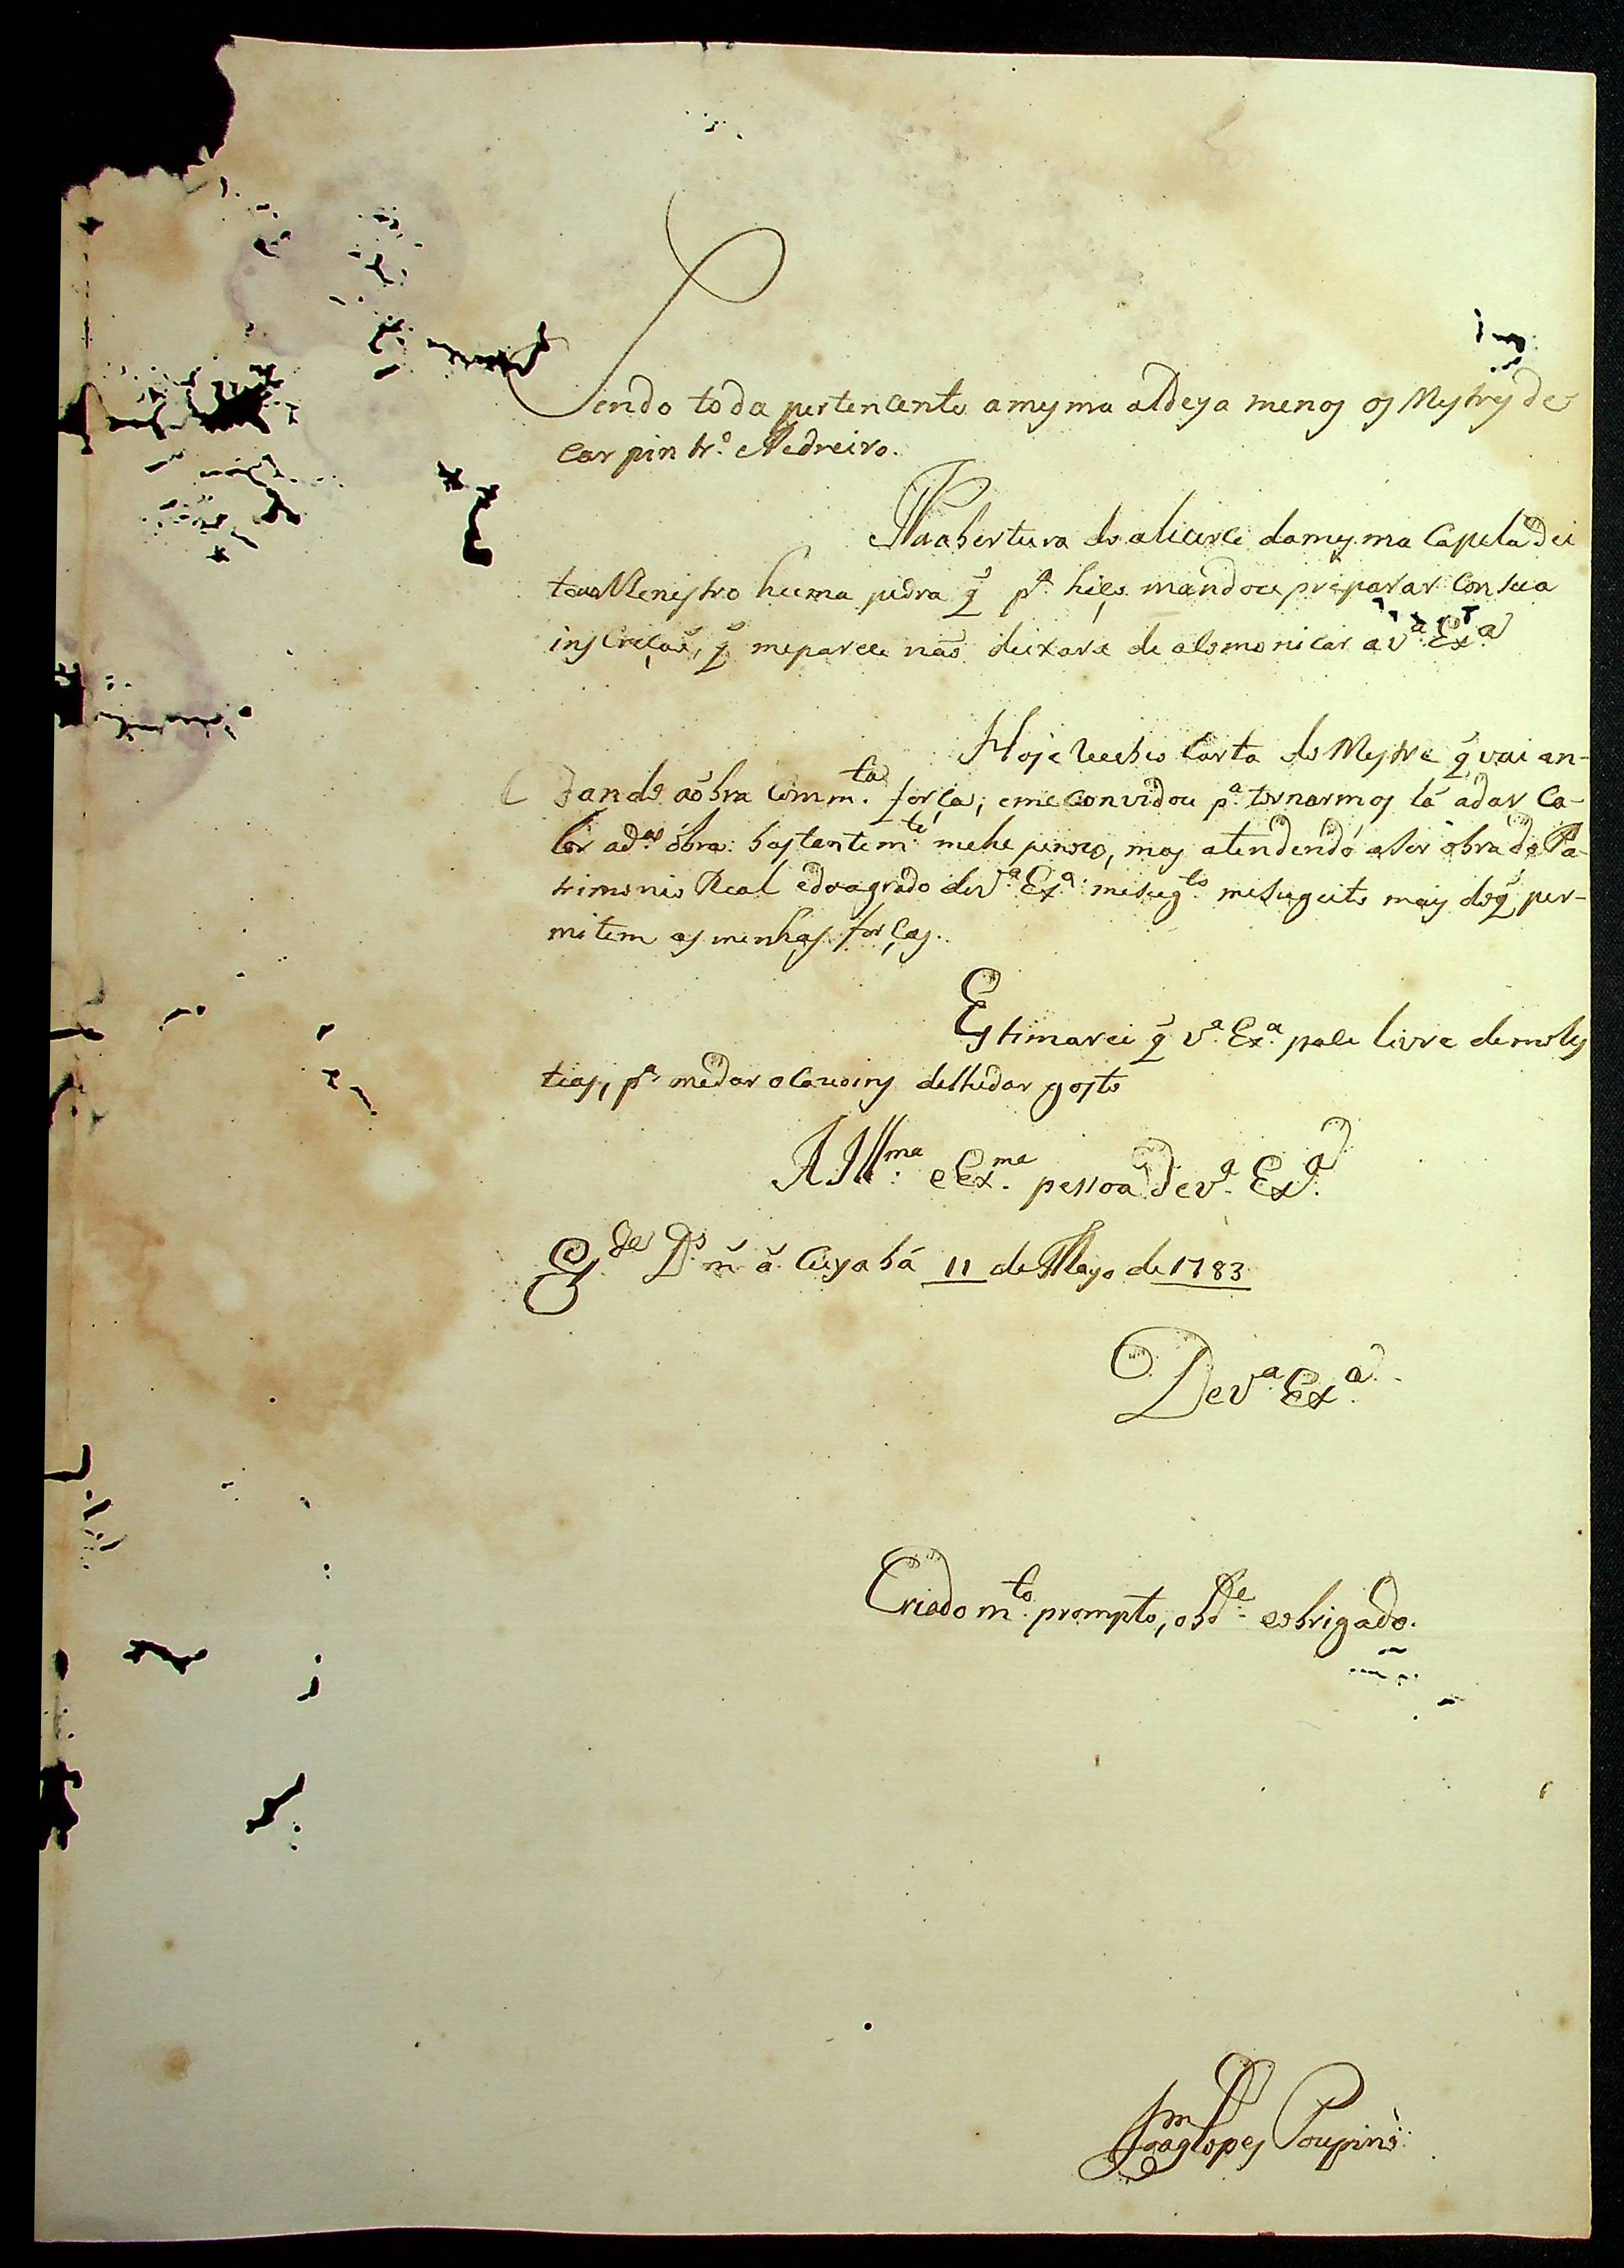 Sendo toda pertencente amesma aldeya menos os Mestres de
carpintrº. ePedreiro.
Na abertura do alicerce damesma Capela dei
tou o Menistro huma pedra q̃ pª. hiço mandou preparar Com sua
inscreçaõ, q̃ meparece naõ deixara de 
aVª. Exª.
Hoje recebeo Carta do Mestre q̃ vai an-
dando aóbra Comm.ta força; eme convidou pª. tornarmos lá adar ca-
lor ad.ª óbra: bastantem.te mehe penozo, mas atendendó aser óbra do Pa-
trimonio Real edoagrado deVª. Exª. mesugto. mesugeito mais doq̃ per-
mitem as minhas forças.
Estimarei q̃ Vª. Exª. passe livre demoles
tias, pª. medar ocaucions delhedar gosto
A Ill.ma eEx.ma pessoa deVª. Exª.
G.de D.s m̃ ã. Cuyabá 11 de Mayo de 1783
DeVª. Exª.
Criado m.to prompto, obd.e eobrigado.
Joaqm Lopes Poupino